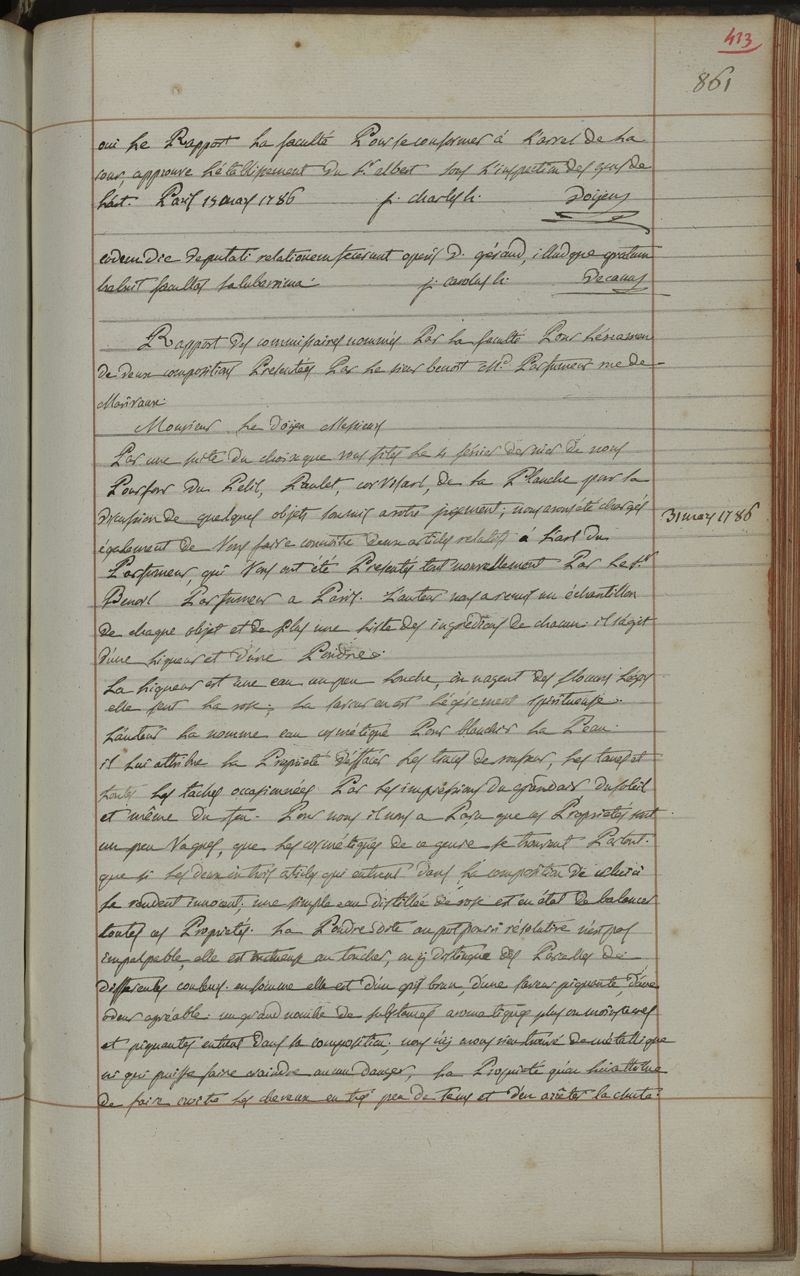 413
861
oui Le Rapport La faculté Pour se conformer á L'arret de La
cour, approuve L'établissement du Sr albert sous L'inspection des gens de
L'art. Paris 13 mars 1786 j. charles h. Doijen
eodem die deputati relationem fecerunt operis D. géraud, illudque gratum
habuit facultas saluberrima. j. carolus h. Decanus
Rapport des commissaires nommés Par La faculté Pour L'examen
de deux compositions Presentées Par Le sieur benoit Md Parfumeur rue de
Marivaux.
Monsieur Le Doijen Messieurs
Par une suite du choix que vous fites Le 4 février dernier de nous
Pourfour du Petit, Paulet, corvisart, de La Planche pour la
discussion de quelques objets soumis a votre jugement; nous avons été chargés
31 mars 1786
également de Vous faire connoitre deux articles relatifs á L'art du
Parfumeur, qui Vous ont été Presentés tout nouvellement Par Le sr
Benoit Parfumeur a Paris. L'auteur nous a remis un échantillon
de chaque objet et de plus une Liste des ingrédiens de chacun. il s'agit
d'une Liqueur et d'une Poudre.
La Liqueur est une eau un peu Louche, où nagent des flocons Légers
elle sent La rose, La saveur en est Légérement spiritueuse.
L'auteur La nomme eau cosmétique Pour blanchir La Peau.
il Lui attribue La Propriété d'effacer Les traces de rousseur, Les
toutes Les taches occasionnées Par Les impressions du grand air du soleil
et même du feu. Pour nous il nous a Paru que ces Propriétés sont
un peu Vagues, que Les cosmétiques de ce genre se trouvent Partout.
que si Les deux ou trois articles qui entrent dans La composition de celui ci
Le rendent innocent, une simple eau distillée de rose est en état de balancer
toutes ces Propriétés. La Poudre dite au potpourri résolutive n'est pas
impalpable, elle est onctueuse au toucher, on ij distingue des Parcelles de
differentes couleurs. en somme elle est d'un gris brun, d'une saveur piquante, d'une
odeur agréable. un grand nombre de substances aromatiques plus ou moins
et piquantes entrent dans sa composition. nous n'ij avons rien trouvé de métallique
ni qui puisse faire craindre aucun danger, La Propriété qu'on Lui attribue
de faire croitre Les cheveux en trés peu de tems et d'en arrêter la chute.